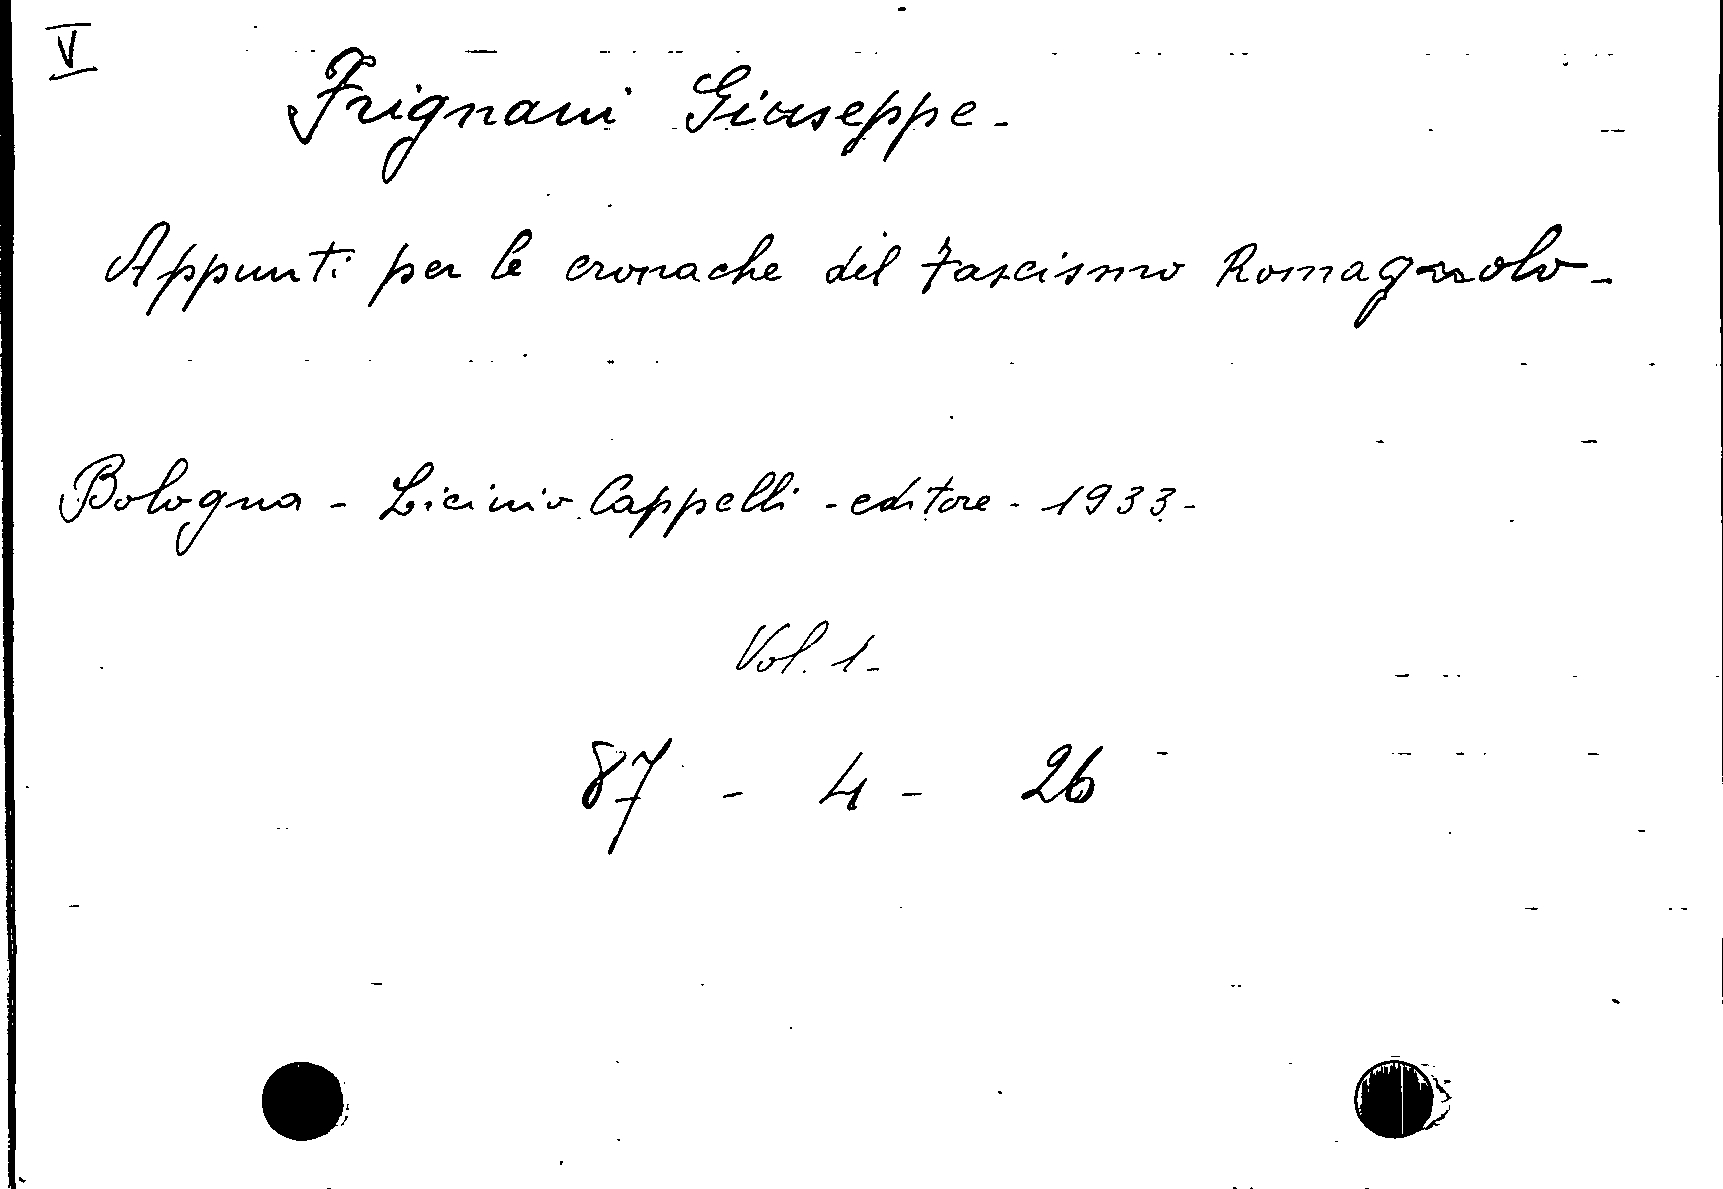 V
Frignani Giuseppe.
Appunti per le cronache del Fascismo Romagnolo.
Bologna - Licinio Cappelli - editore - 1933-
Vol. 1-
87 - 4 - 26